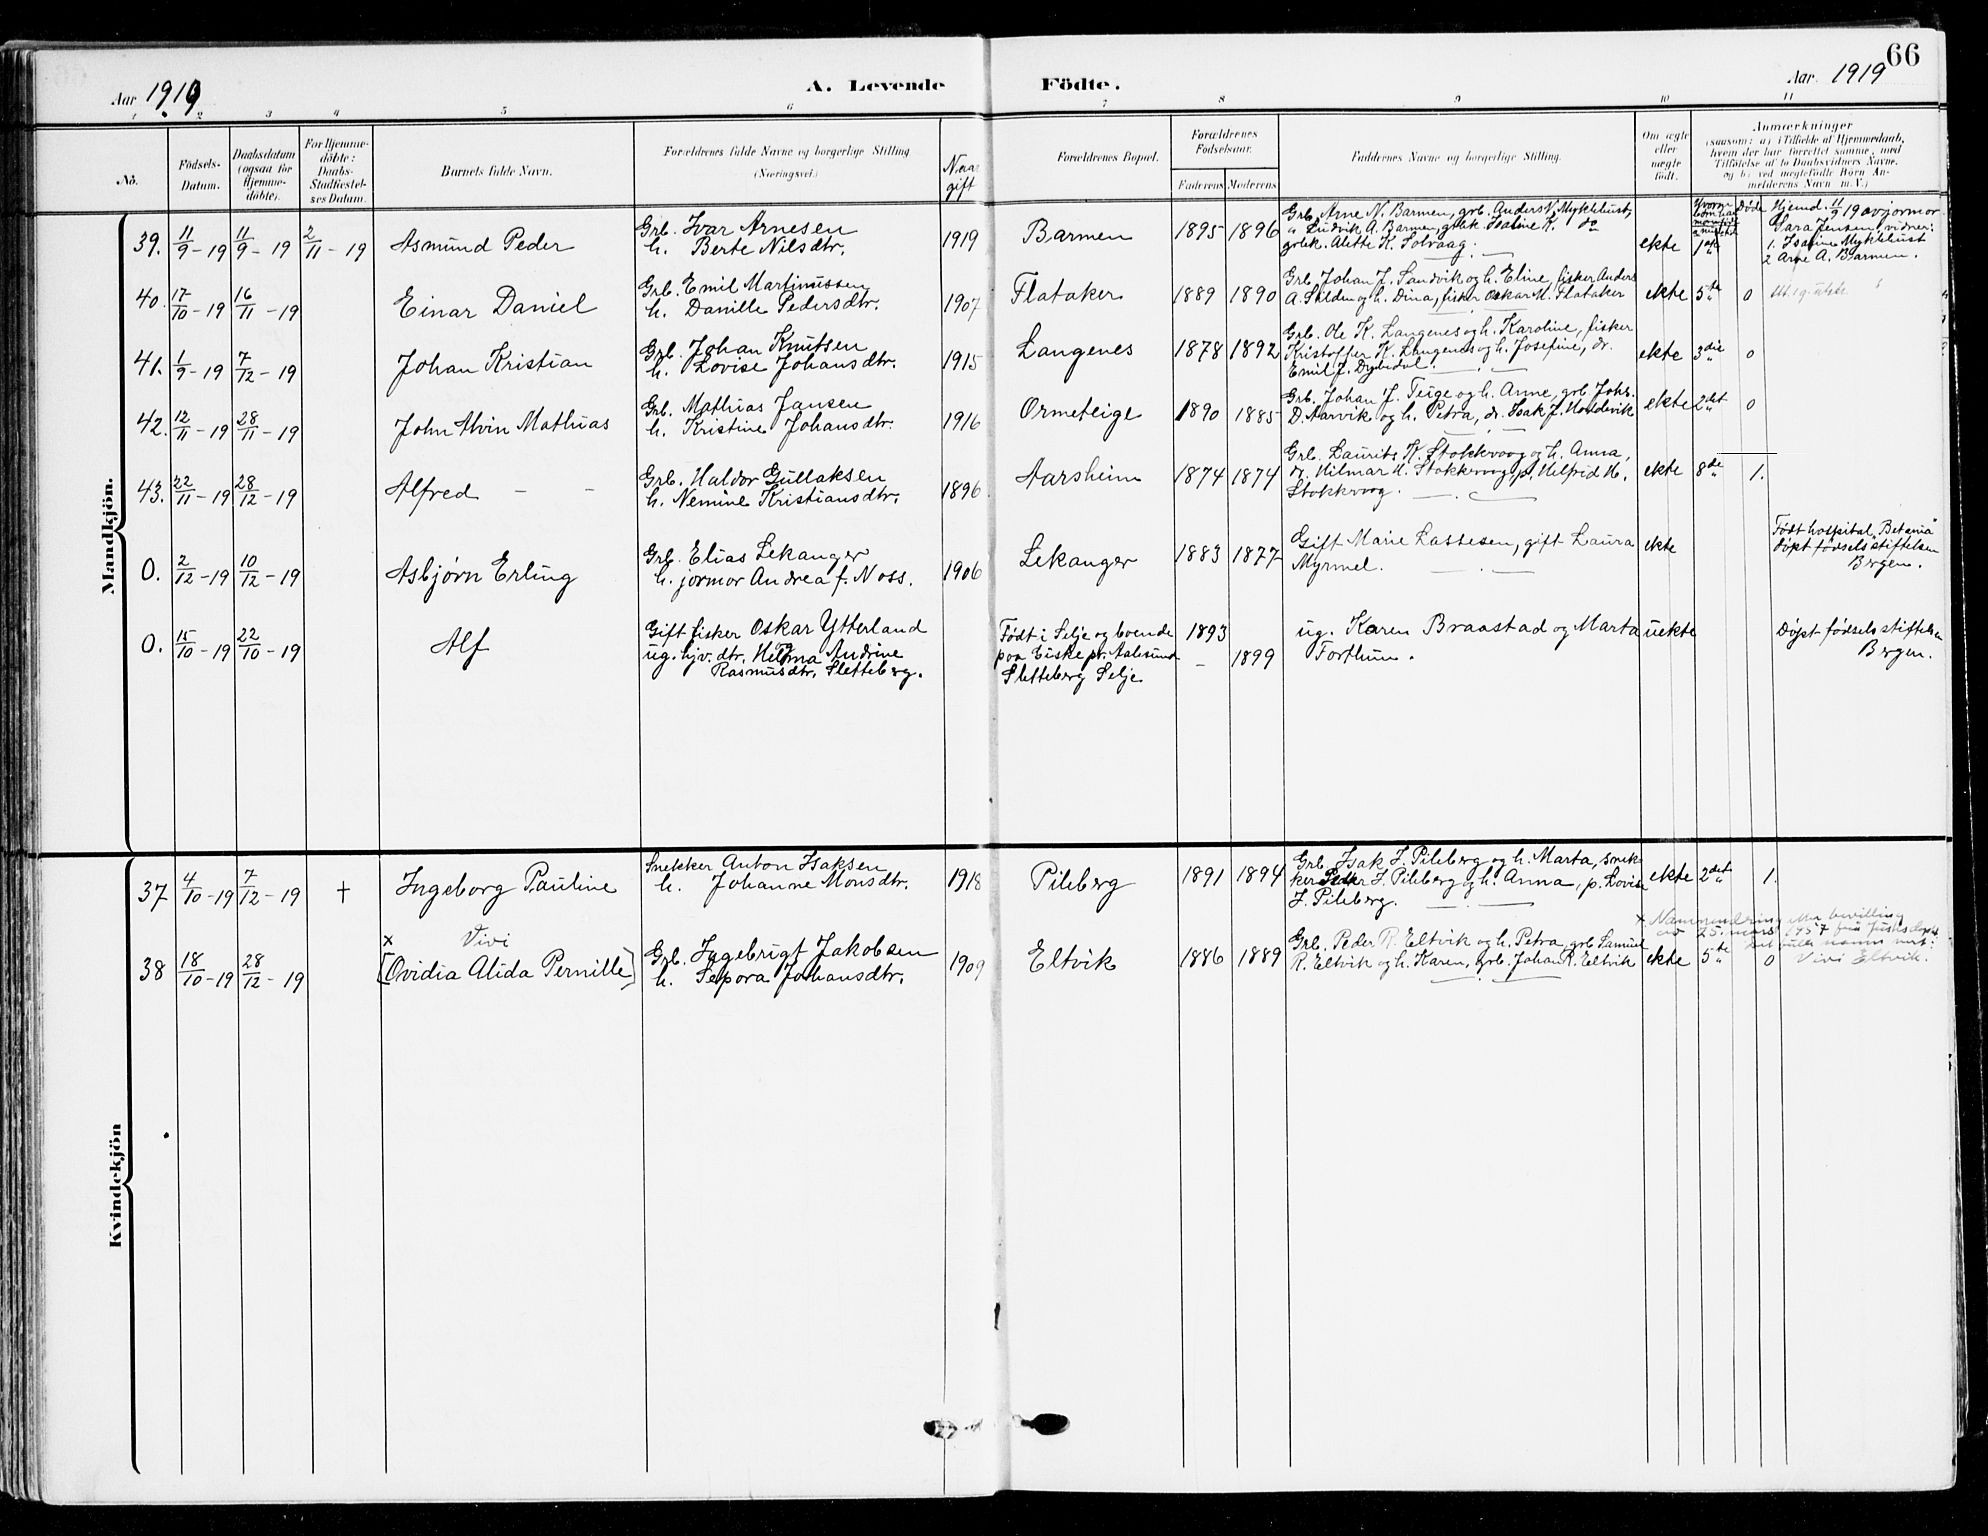 66
Aar 1919 A. Levende Födte. Aar. 1919
1 2 3 4 5 6 7 8 9 10 11
No. Födsels-Datum. Daabsdatum (ogsaa for Hjemmedöbte). For Hjemmedöbte: Daabs-Stadfæstelses Datum. Barnets fulde Navn. Forældrenes fulde Navne og borgerlige Stilling (Næringsvei.) Naar gift Forældrenes Bopæl. Forældrenes Födselsaar. Faderens Moderens Faddernes Navne og borgerlige Stilling. Om ægte eller uægte födt. Anmærkninger (saasom: a) i Tilfælde af Hjemmedaab, hvem der har forrettet samme, med Tilföielse af to Daabsvidners Navne, og b) ved uægtefödte Börn Anmelderens Navn m. V.)
Mandkjön.
39. 11/9 - 19 11/9 - 19 2/11 - 19 Asmund Peder
Grb. Ivar Arnesen
h. Berte Nilsdtr. 1919
Barmen 1895 1896
Grb. Arne N. Barmen, grb. Anders N. Myklebust,
" Ludvik A. Barmen, grbk. Isaline K. do
grbk. Alette K. Solvaag.
ekte 1ste Döde
Hjemd. 11/9 19 av jormor
Sara Jensen, vidner:
1. Isaline Myklebust
2 Arne A. Barmen.
40. 17/10 - 19 16/11 - 19 Einar Daniel
Grb. Emil Martinussen
h. Danille Pedersdtr. 1907
Flataker 1889 1890
Grb. Johan J. Sandvik og h. Eline, fisker Anders
A. Selden og h. Dina, fisker Oskar M. Flataker
ekte 5te 0
41. 1/9 - 19 7/12 - 19 Johan Kristian
Grb. Johan Knutsen
h. Lovise Johansdtr. 1915
Langenes 1878 1892
Grb. Ole K. Langenes og h. Karoline, fisker
Kristoffer K. Langenes og h. Josefine, dr.
Emil J. Dybedal.
ekte 3die 0
42. 12/11 - 19 28/11 - 19 John Alvin Mathias
Grb. Mathias Jansen
h. Kristine Johansdtr. 1916
Ormeteige 1890 1885
Grb. Johan J. Teige og h. Anne, grb. Johs.
D. Aarvik og h. Petra, dr. Isak J. Hoddevik
ekte 2det 0
43. 22/11 - 19 28/12 - 19 Alfred - -
Grb. Haldor Gullaksen
h. Nemine Kristiansdtr. 1896
Aarsheim 1874 1874
Grb. Laurits K. Stokkevaag og h. Anna,
dr. Hilmar H. Stokkevaag, p. Helfrid H.
Stokkvaag.
ekte 8de 1.
0. 2/12 - 19 10/12 - 19 Asbjørn Erling
Grb. Elias Lekanger
h. jormor Andrea f. Noss. 1906
Lekanger 1883 1877
Gift Marie Lassesen, gift Laura
Myrmel.
ekte
Født hospital "Betania"
døpt fødselsstiftelsen
Bergen.
0. 15/10 - 19 22/10 - 19 Alf
Gift fisker Oskar Ytterland
og
ug. hjv. dtr. Helma Andrine
Rasmusdtr. Sletteberg.
Født i Selje og boende
paa Giske pr. Aalesund
Sletteberg Selje
1893 - 1899
ug. Karen Braastad og Marta
Forthun.
uekte
Døpt fødselsstiftelsen
Bergen.
Kvindekjön
37 4/10 - 19 7/12 - 19 + Ingeborg Pauline
Snekker Anton Isaksen
h. Johanne Monsdtr. 1918
Pileberg 1891 1894
Grb. Isak J. Pileberg og h. Marta, snik-
ker Peder J. Pileberg og h. Anna, p. Lovise
J. Pileberg.
ekte 2det 1.
38 18/10 - 19 28/12 - 19
x Vivi
[Ovidia Alida Pernille]
Grb. Ingebrigt Jakobsen
h. Sepora Johansdtr. 1909
Eltvik 1886 1889
Grb. Peder R. Eltvik og h. Petra, grb. Samuel
R. Eltvik og h. Karen, grb. Johan R. Eltvik
ekte 5te 0
x Navneendring etter bevilling
av 25. mars 1957
fulle namn
Vivi Eltvik.